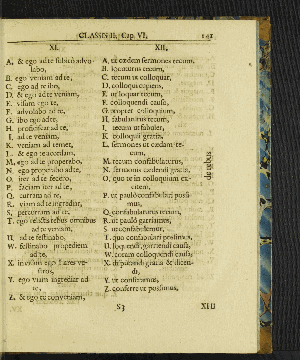 CLASSIS II. Cap. VI. 141
XI.
A. & ego ad te subito advo-
labo,
B. ego veniam ad te,
C. ego ad te ibo,
D. & ego ad te veniam,
E. visam ego te,
F. advolabo ad te,
G. ibo ego ad te,
H. proficiscar ad te,
I. ad te veniam,
K. veniam ad te
L. & ego te accedam,
M. ego ad te properabo,
N. ego properabo ad te,
O. iter ad te faciam,
P. faciam iter ad te,
Q. curram ad te,
R. viam ad te ingrediar,
S. percurram ad te,
T. ego relictis rebus omnibus
ad te veniam,
U. ad te festinabo,
W. festinabo propediem
ad te,
X. invisam ego lares ve-
stros,
Y. ego viam ingrediar ad
te,
Z. & ego te conveniam,
XII.
A. ut tecum sermones
B. locuturus tecum,
C. tecum ut colloquar,
D. colloquii cupiens,
E. ut loquar tecum,
F. colloquendi causa,
G. propter colloquium,
H. fabulaturus tecum,
I. tecum ut fabuler,
K. colloquii gratia,
L. sermones ut cædam te-
cum,
M. tecum confabulaturus,
N. sermonis cædendi gratia,
O. quo te in colloquium ex-
citem,
P. ut paulo confabulari possi-
mus,
Q. confabulaturus tecum,
R. ut paulo garriamus,
S. ut confabulemur,
T. quo confabulari possimus,
U. loquendi, garriendi causa,
W. coram colloquendi causa,
X. disputandi gratia & dicen-
di,
Y. ut conferamus,
Z. conferre ut possimus,
de rebus
S 3 XIII